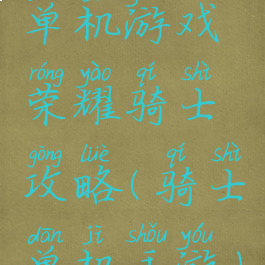 单机游戏
róng yào qí shì
荣耀骑士
gōng lüè qí shì
攻略(骑士
dān jī shǒu yóu
单机手游)